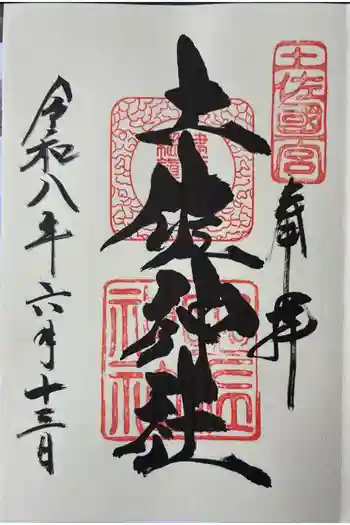 土佐國一宮
奉拝
土佐神社
令和八年六月十三日